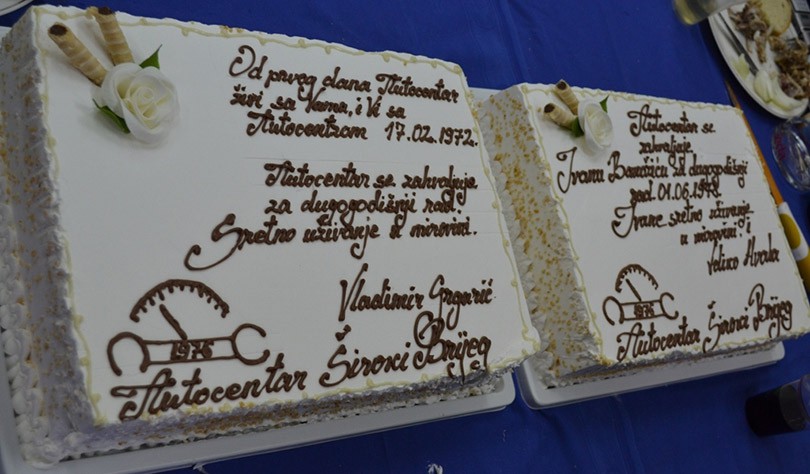 Od prveg dana Autocentar
živi sa Vama, i Vi sa
Autocentrom 17.02.1972.
Autocentar se zahvaljuje
za dugogodišnji rad.
Sretno uživanje u mirovini.
Vladimir Grgarić
1976
Autocentar Široxi Brijeg
Autocentar se
zahvaljuje
Ivanu za dugogodišnji
rad 01.06.1978
Ivane sretno uživanje
u mirovini i
Veliko Hvala
1976
Autocentar Široxi Brijeg